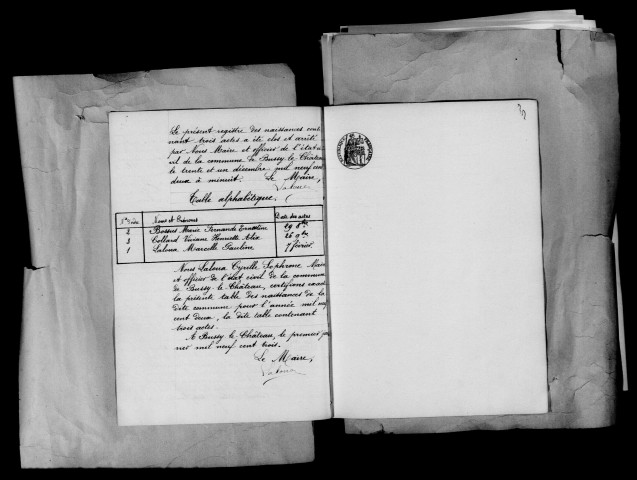 Le présent registre des naissances conte-
nant trois actes a été clos et arrêté
par Nous Maire et officier de l'état ci-
vil de la commune de Bussy-le-Château
le trente et un décembre mil neuf cent
deux à minuit. Le Maire,
Table alphabétique.
Noms et Prénoms Date des actes
2 Bossus Marie Fernande Ernestine 29 8bre
3 Collard Viviane Henriette Alix 26 9bre
1 Laloua Marcelle Pauline 7 février
Nous Laloua Cyrille Sophrone Maire
et officier de l'état civil de la commune
de Bussy-le-Château, certifions exacte
la présente table des naissances de la
dite commune pour l'année mil neuf
cent deux, la dite table contenant
trois actes.
A Bussy-le-Château, le premier jan-
vier mil neuf cent trois.
Le Maire,